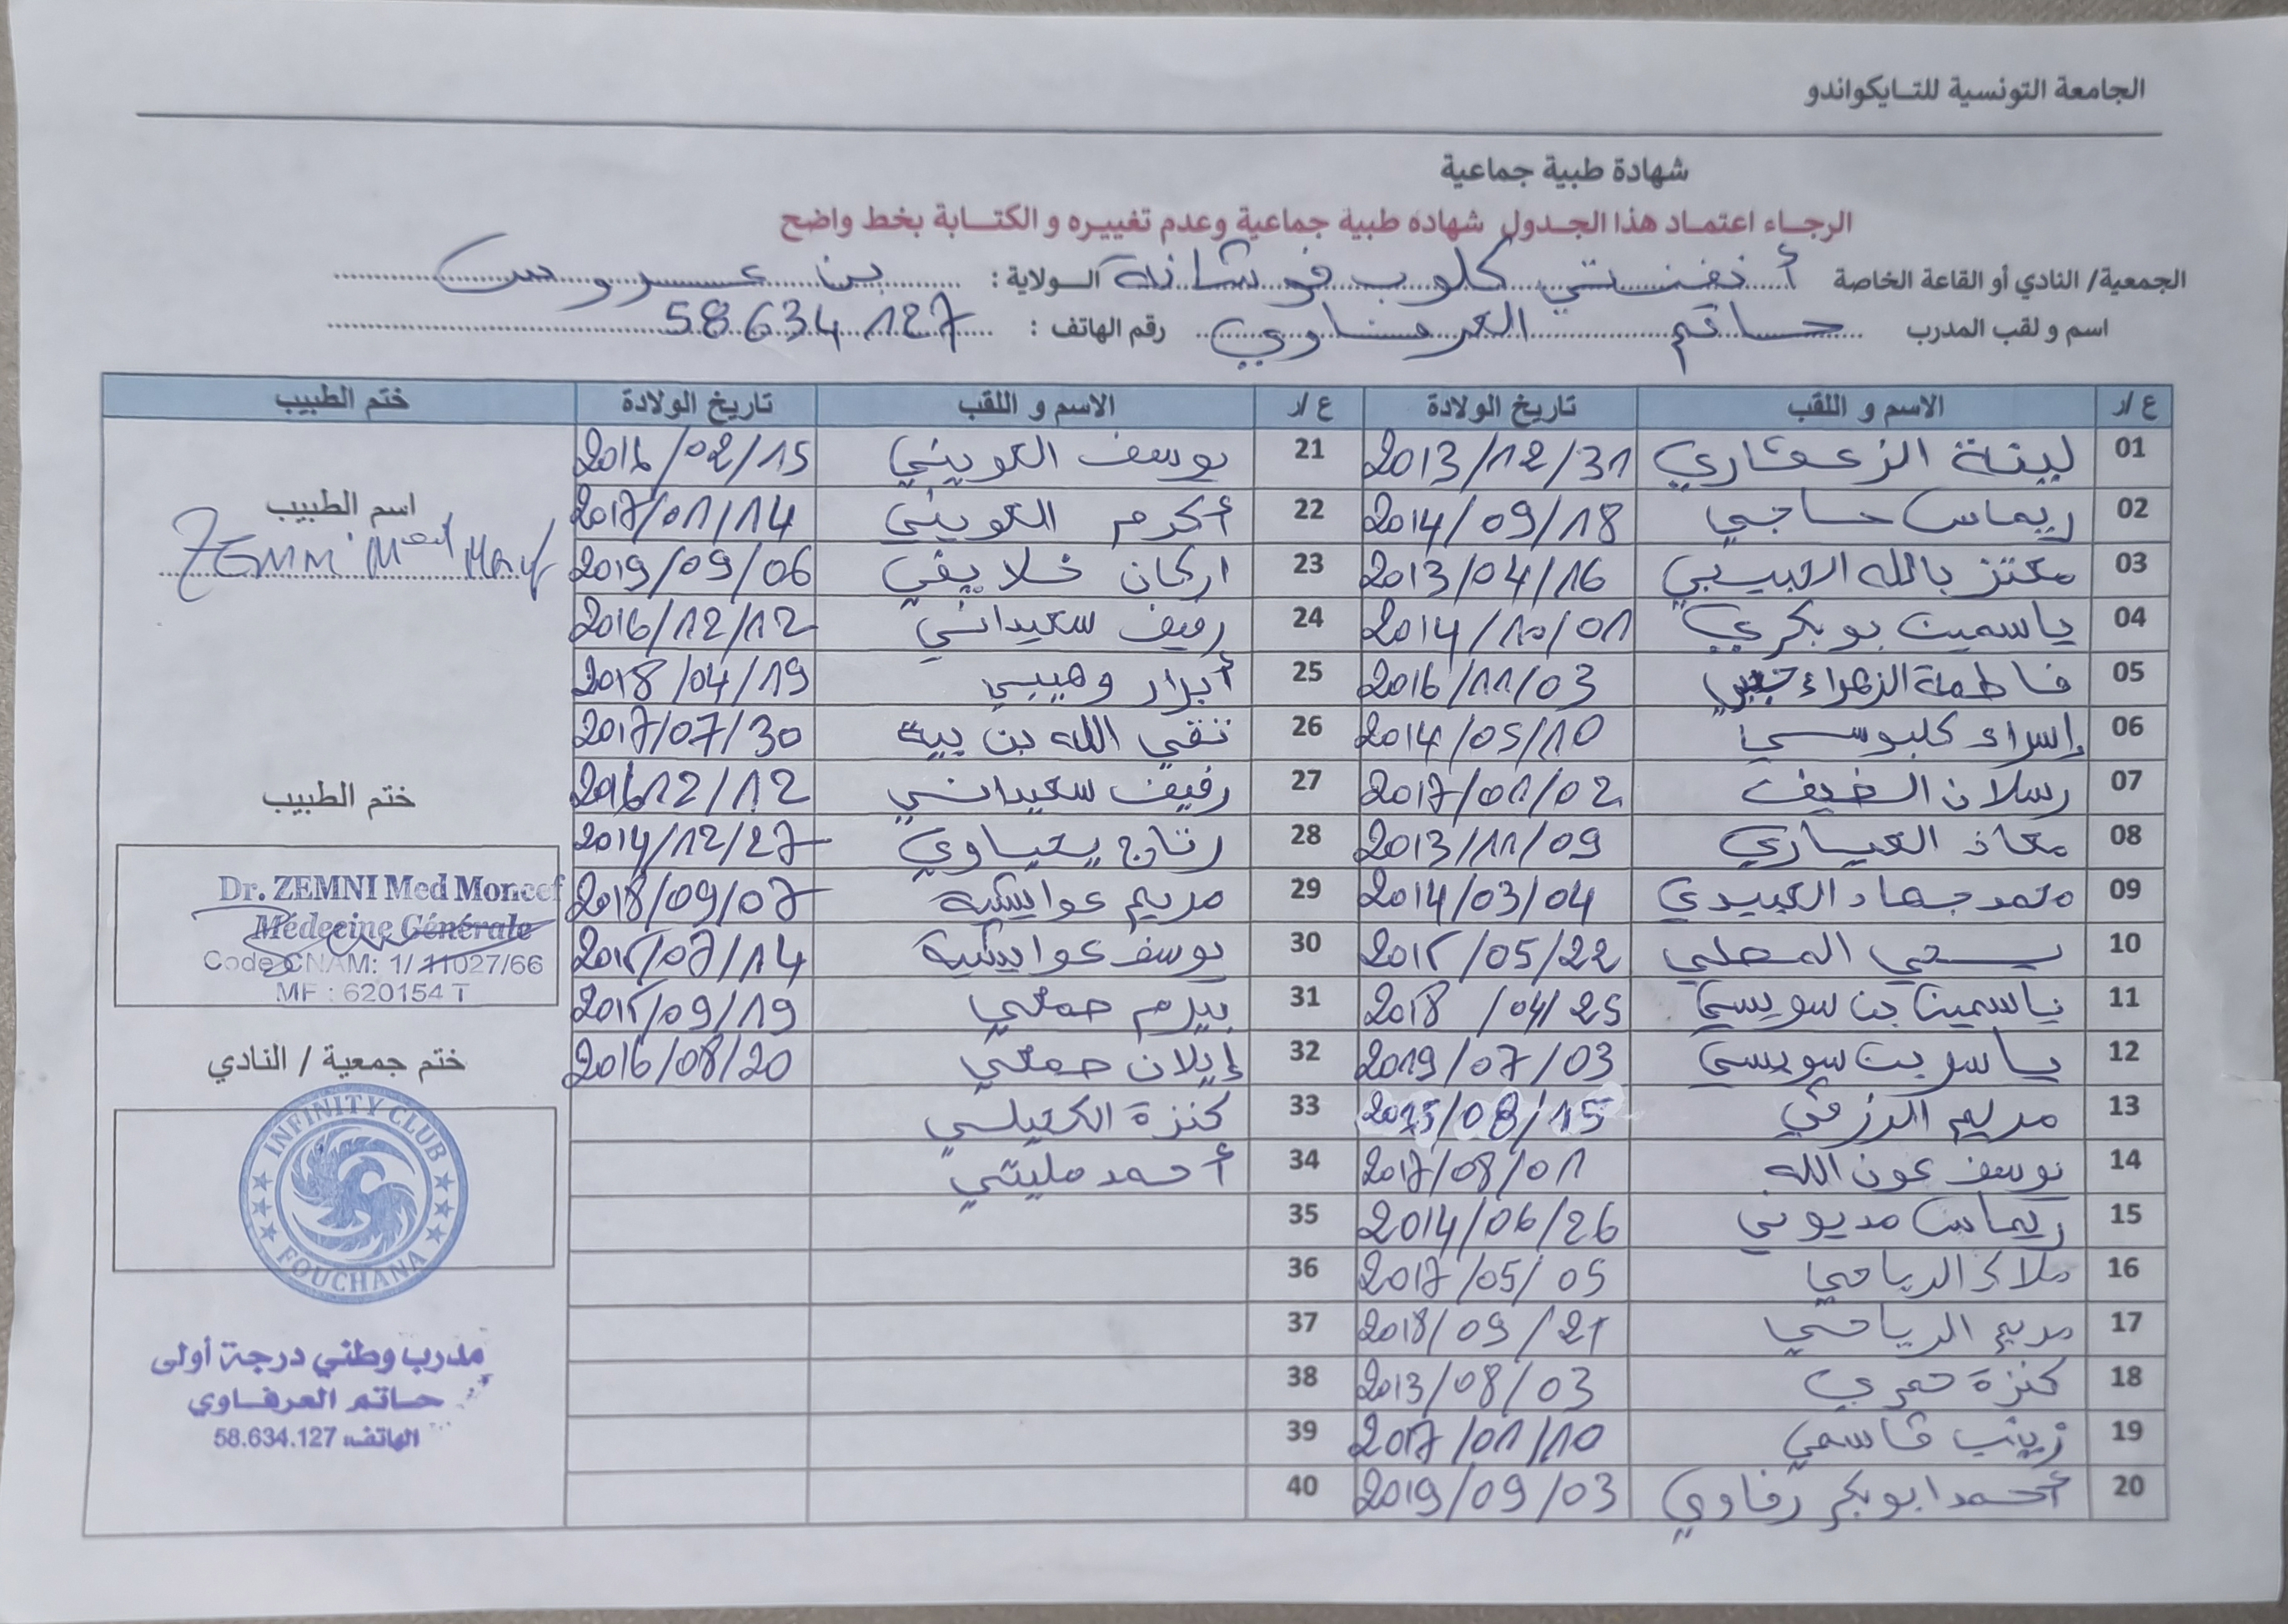 الجامعة التونسية للتـايكواندو
شهادة طبية جماعية
الرجـاء اعتمـاد هذا الجـدول شهاده طبية جماعية وعدم تغييـره و الكتـابة بخط واضح
الجمعية/ النادي أو القاعة الخاصة أنفنتي كلوب فوشانة الـولاية : بن عروس
اسم و لقب المدرب حاتم العرفاوي رقم الهاتف : 58.634.127
ع /ر الاسم و اللقب تاريخ الولادة ع /ر الاسم و اللقب تاريخ الولادة ختم الطبيب
01 لينة الزعفاري 2013/12/31 21 يوسف العويني 2016/02/15
02 ريماس حاجي 2014/09/18 22 أكرم العويني 2017/01/14
03 معتز بالله 2013/04/16 23 اركان خلايفي 2019/09/06
04 ياسمين بوبكري 2014/10/01 24 رفيف سعيداني 2016/12/12
05 فاطمة الزهراء 2016/11/03 25 أبرار وهيبي 2018/04/19
06 إسراء كلبوسي 2014/05/10 26 تقي الله بن بية 2017/07/30
07 رسلان الضيف 2017/01/02 27 رفيف سعيداني 2016 12/12
08 معاذ العياري 2013/11/09 28 رتاج يحياوي 2014/12/27
09 محمد جهاد العبيدي 2014/03/04 29 مريم عوايشية 2018/09/07
10 يحي المحلي 2015/05/22 30 يوسف عوايشية 2015/07/14
11 ياسمين بن سويسي 2018/04/25 31 بيرم حمعي 2015/09/19
12 ياسر بن سويسي 2019/07/03 32 إيلان حمعي 2016/08/20
13 مريم الرزقي 2015/08/15 33 كنزة
14 يوسف عون الله 2017/08/01 34 أحمد مليتي
15 ريماس مديوني 2014/06/26 35
16 ملاك الرياحي 2017/05/05 36
17 مريم الرياحي 2018/09/21 37
18 كنزة عمري 2013/08/03 38
19 زينب قاسمي 2017/01/10 39
20 أحمد ابوبكر رفاوي 2019/09/03 40
اسم الطبيب
ZEMNI Med Moncef
ختم الطبيب
Dr. ZEMNI Med Moncef
Médecine Générale
Code CNAM: 1/ 11027/66
MF : 620154 T
ختم جمعية / النادي
INFINITY CLUB
FOUCHANA
مدرب وطني درجة أولى
حـاتم العرفـاوي
الهاتف: 58.634.127